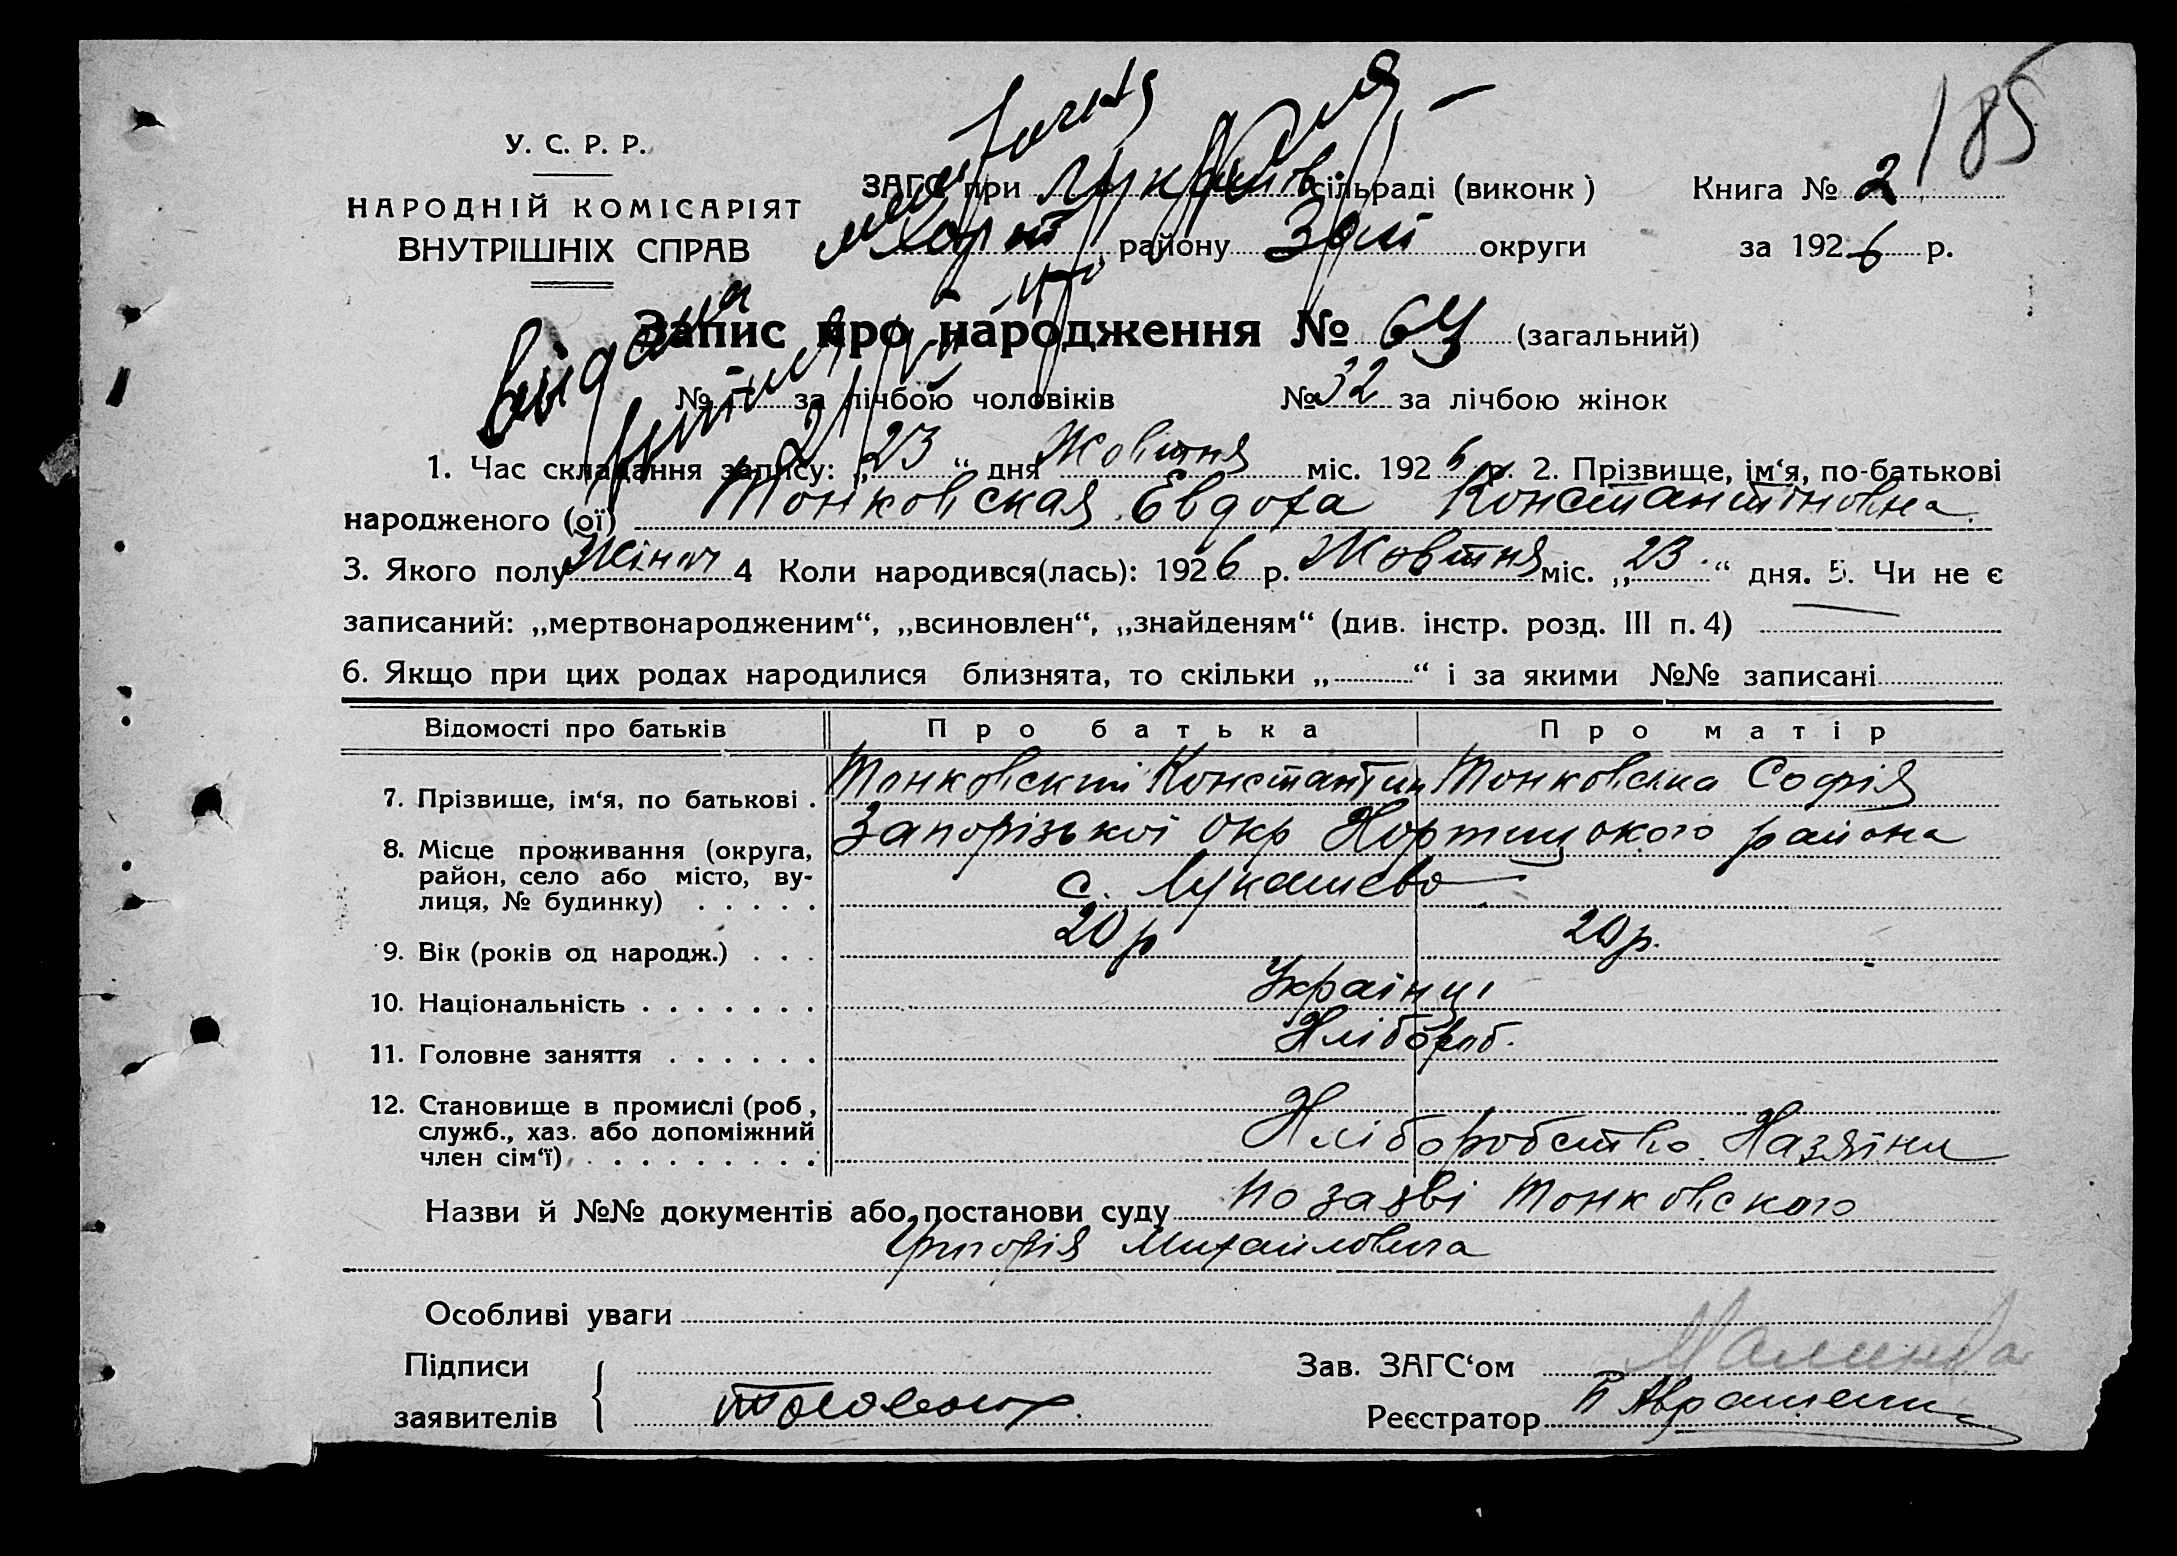 185
У. С. Р. Р.
НАРОДНІЙ КОМІСАРІЯТ
ВНУТРІШНІХ СПРАВ
ЗАГС при Лукашов сільраді (виконк )
Хорт району Зап округи
Книга № 2
за 1926 р.
Видана
Запис про народження № 64 (загальний)
№ - за лічбою чоловіків № 32 за лічбою жінок
1. Час складання запису: „23“ дня Жовтня міс. 1926 р. 2. Прізвище, ім‘я, по-батькові
народженого (ої) Тонковская Евдоха Константиновна
3. Якого полу Жіноч 4 Коли народився(лась): 1926 р. Жовтня міс. „23“ дня. 5. Чи не є
записаний: „мертвонародженим“, „всиновлен“, „знайденям“ (див. інстр. розд. III п. 4)
6. Якщо при цих родах народилися близнята, то скільки „ “ і за якими №№ записані
Відомості про батьків Про батька Про матір
7. Прізвище, ім‘я, по батькові . Тонковский Константин Тонковска Софія
8. Місце проживання (округа, район, село або місто, вулиця, № будинку) . . . . . Запорізької окр Хортицького района
с. Лукашево
9. Вік (років од народж.) . . . 20 р 20 р.
10. Національність . . . . . . . Українці
11. Головне заняття . . . . . . Хлібороб.
12. Становище в промислі (роб, служб., хаз. або допоміжний член сім‘ї) . . . . . . . . . Хліборобство Хазяїни
Назви й №№ документів або постанови суду по заяві Тонковского
Григорія Михаиловича
Особливі уваги
Підписи
заявителів
Зав. ЗАГС‘ом
Реєстратор